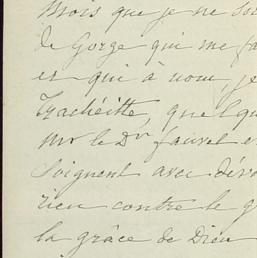 Mois que je ne so
de Gorge qui me fa
es qui a nom, je
Trachéitte, quelqu
Mr le Dr fauvel e
Soignent avec dévo
rien contre le g
la grâce de Dieu